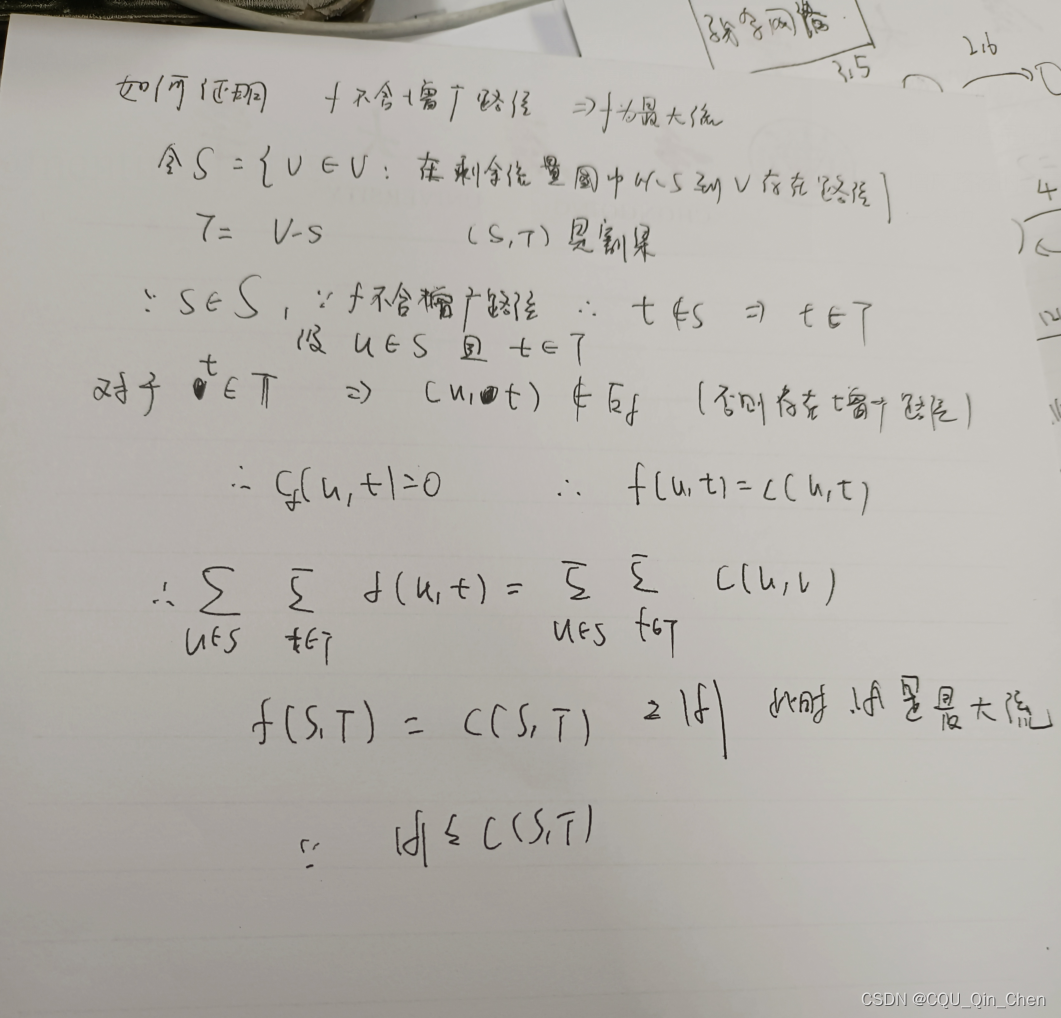 2,6
3,5
4
12
如何证明 f不含增广路径 ⇒ f为最大流
令 S = {v ∈ V: 在剩余流量图中从s到v存在路径}
T = V-S (S,T) 是割集
∵ s∈S, ∵ f不含增广路径 ∴ t∉S ⇒ t∈T
设 u∈S 且 t∈T
对于 t∈T ⇒ (u, t) ∉ Ef (否则存在增广路径)
∴ Cf(u,t)=0 ∴ f(u,t)=c(u,t)
∴ Σ Σ f(u,t) = Σ Σ C(u,v)
u∈S t∈T u∈S t∈T
f(S,T) = C(S,T) = |f| 此时 |f| 是最大流
∵ |f| ≤ C(S,T)
CSDN @CQU_Qin_Chen